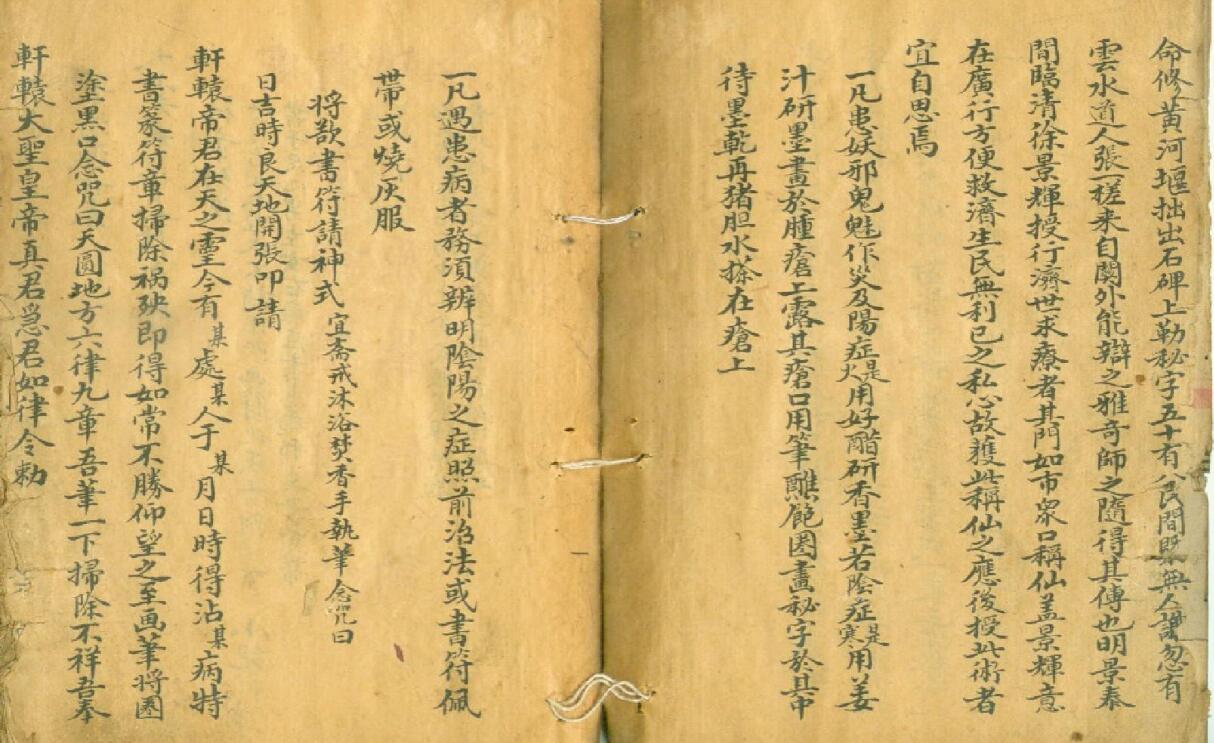 命修黃河堰拙出石碑上勒秘字五十有八民間既無人識忽有
雲水道人張一槎来自関外能辯之雅奇師之隨得其傳也明景泰
間臨清徐景輝授行濟世求療者其門如市衆口稱仙盖景輝意
在廣行方便救濟生民無利已之私心故獲此稱仙之應後授此術者
宜自思焉
一凡患妖邪鬼魅作災及陽症是火用好醋研香墨若陰症是寒用姜
汁研墨畫於腫瘡上露其瘡口用筆蘸飽圏畫秘字於其中
待墨乾再猪胆水搽在瘡上
一凡遇患病者務須辨明陰陽之症照前治法或書符佩
帶或燒灰服
将欲書符請神式 宜齋戒沐浴焚香手執筆念咒曰
日吉時良天地開張叩請
軒轅帝君在天之霊今有某處某人于某月日時得沾某病特
書篆符章掃除祸殃即得如常不勝仰望之至画筆將圏
塗黒口念咒曰天圓地方六律九章吾筆一下掃除不祥吾奉
軒轅大聖皇帝真君急君如律令勅